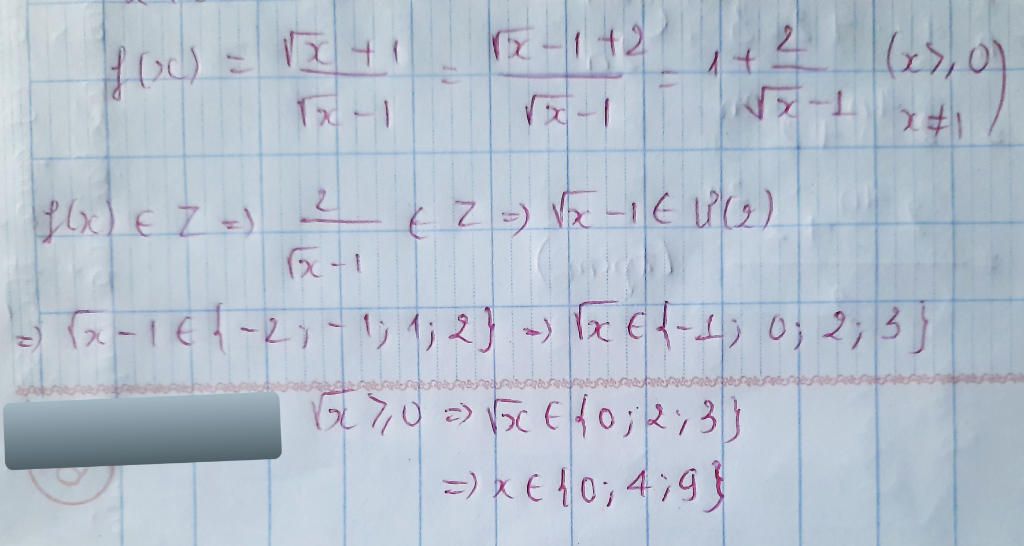 f(x) = (√x + 1)/(√x - 1) = (√x - 1 + 2)/(√x - 1) = 1 + 2/(√x - 1) (x ≥ 0, x ≠ 1)
f(x) ∈ Z => 2/(√x - 1) ∈ Z => √x - 1 ∈ Ư(2)
=> √x - 1 ∈ {-2; -1; 1; 2} => √x ∈ {-1; 0; 2; 3}
√x ≥ 0 => √x ∈ {0; 2; 3}
=> x ∈ {0; 4; 9}